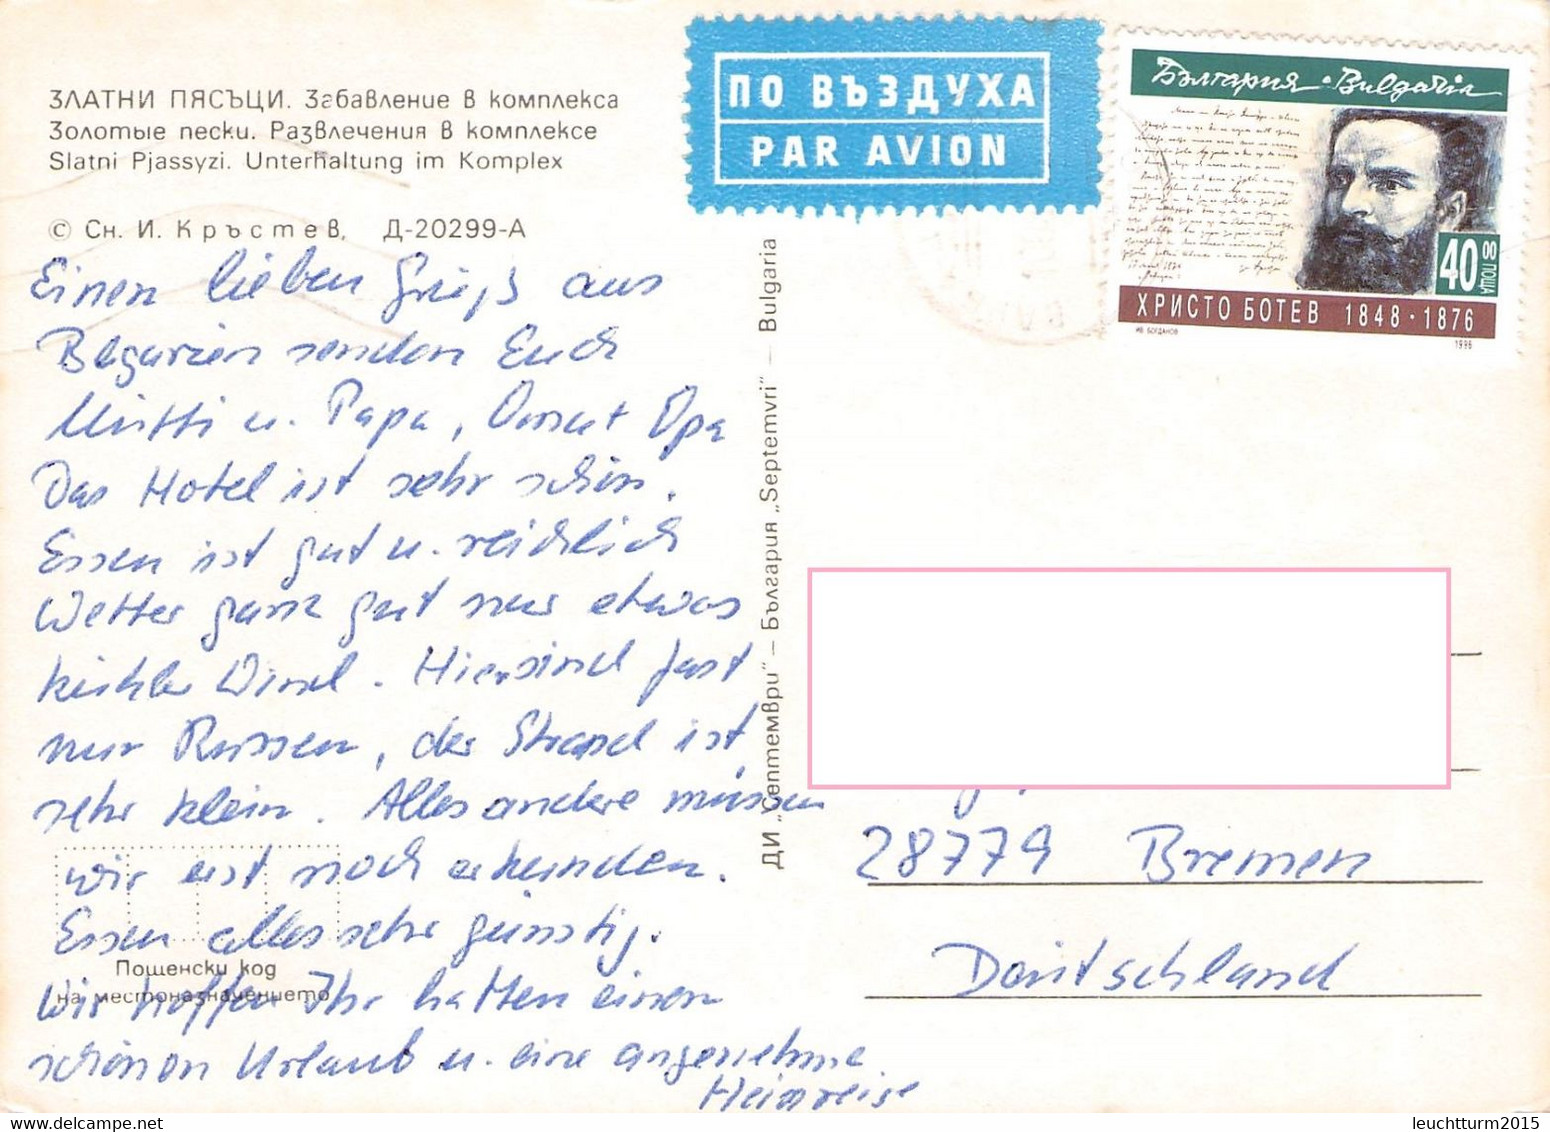 ЗЛАТНИ ПЯСЪЦИ. Забавление в комплекса
Золотые пески. Развлечения в комплексе
Slatni Pjassyzi. Unterhaltung im Komplex
© Сн. И. Кръстев, Д-20299-А
Einen lieben Gruß aus
Blgarien senden Euch
Mutti u. Papa, Oma u. Opa
Das Hotel ist sehr schön.
Essen ist gut u. reichlich
Wetter ganz gut nur etwas
kühler Wind. Hier sind fast
nur Russen, der Strand ist
sehr klein. Alles andere müssen
wir erst noch erkunden.
Essen alles sehr günstig.
Wir hoffen Ihr hatten einen
schönen Urlaub u. eine angenehme
Heimreise
Пощенски код
на местоназначението
ДИ „Септември" – България „Septemvri" – Bulgaria
ПО ВЪЗДУХА
PAR AVION
България · Bulgaria
40 00 ПОЩА
ХРИСТО БОТЕВ 1848 · 1876
ИВ. БОГДАНОВ 1996
28779 Bremen
Deutschland
leuchtturm2015